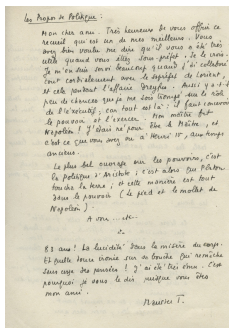 Les Propos de Politique :
Mon cher ami. Très heureux de vous offrir ce
recueil qui est un de mes meilleurs. Vous
avez bien voulu me dire qu'il vous a été très
utile quand vous étiez sous-préfet. Je le crois.
Je m'en suis servi beaucoup quand j'ai collaboré
tout cordialement avec le sous-préfet de Lorient,
et cela pendant l'affaire Dreyfus. Aussi y a-t-il
peu de chances que je me sois trompé sur le rôle
de l'exécutif, car tout est là : il faut
le pouvoir et l'exercer. Mon maître fut
Napoléon ! J'étais né pour être le Maître, et
c'est ce que vous avez vu à Henri IV, au temps
ancien.
Le plus bel ouvrage sur les pouvoirs, c'est
la Politique d'Aristote ; c'est alors que Platon
touche la terre ; et cette manière est tout
dans le recueil (le pied et le mollet de
Napoléon).
A vous
83 ans ! La lucidité dans la misère du corps.
Et quelle douce ironie sur
ses pensées ! J'ai été très ému. C'est
pourquoi je vous le dis puisque vous êtes
mon ami.